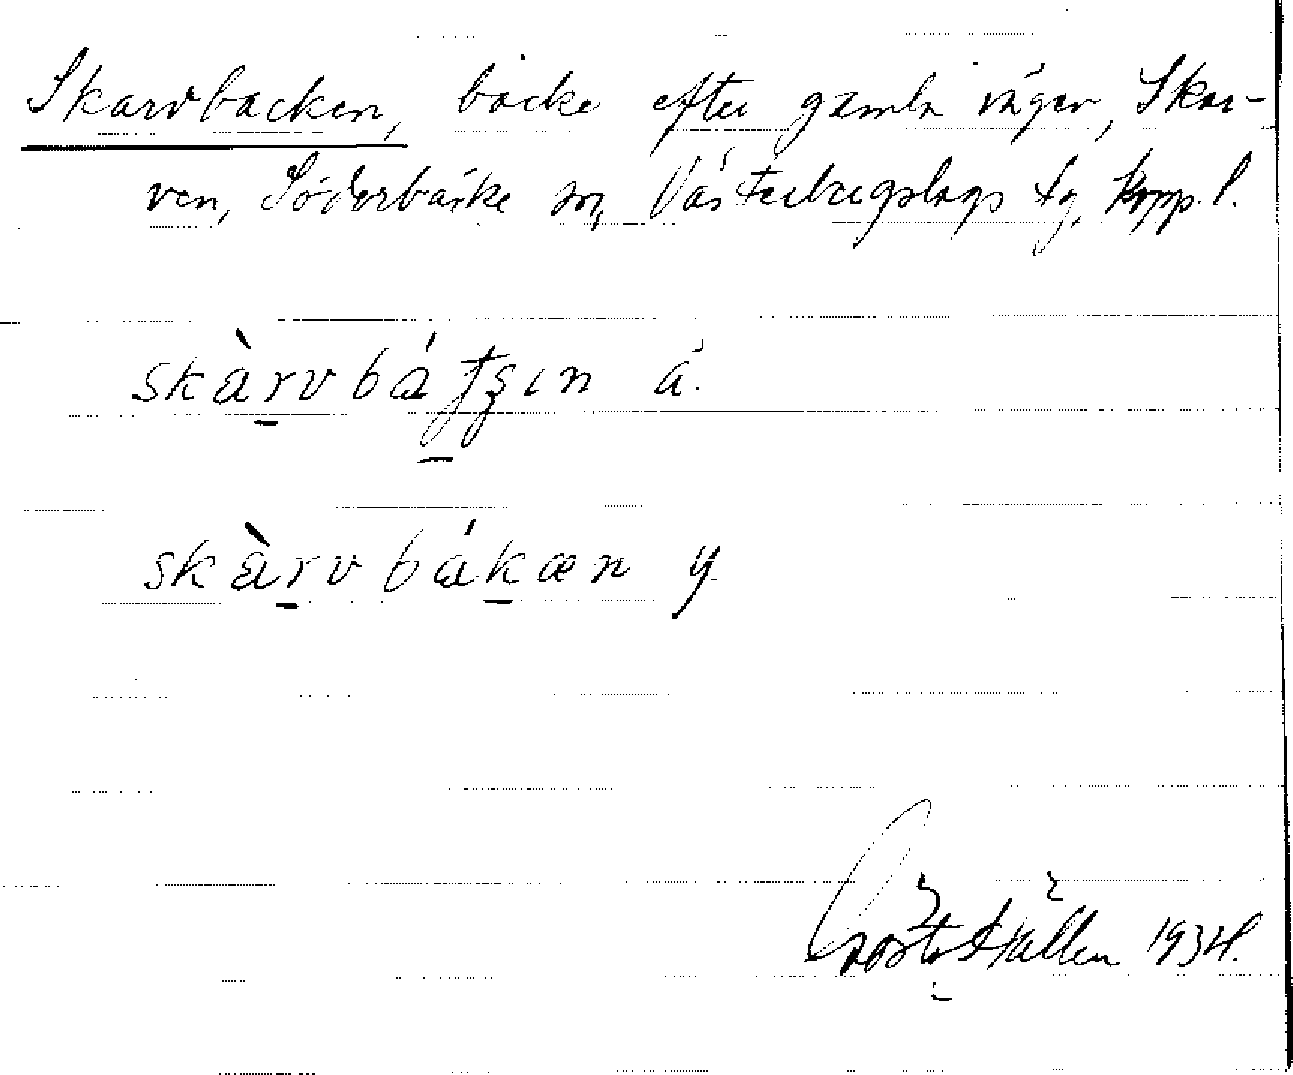 Skarvbacken, backe efter gamla vägen, Skar-
ven, Söderbärke sn, Västerbergslags tg, Kopp. l.
skàrvbátʒın ä.
skàrvbákæn y
1934.